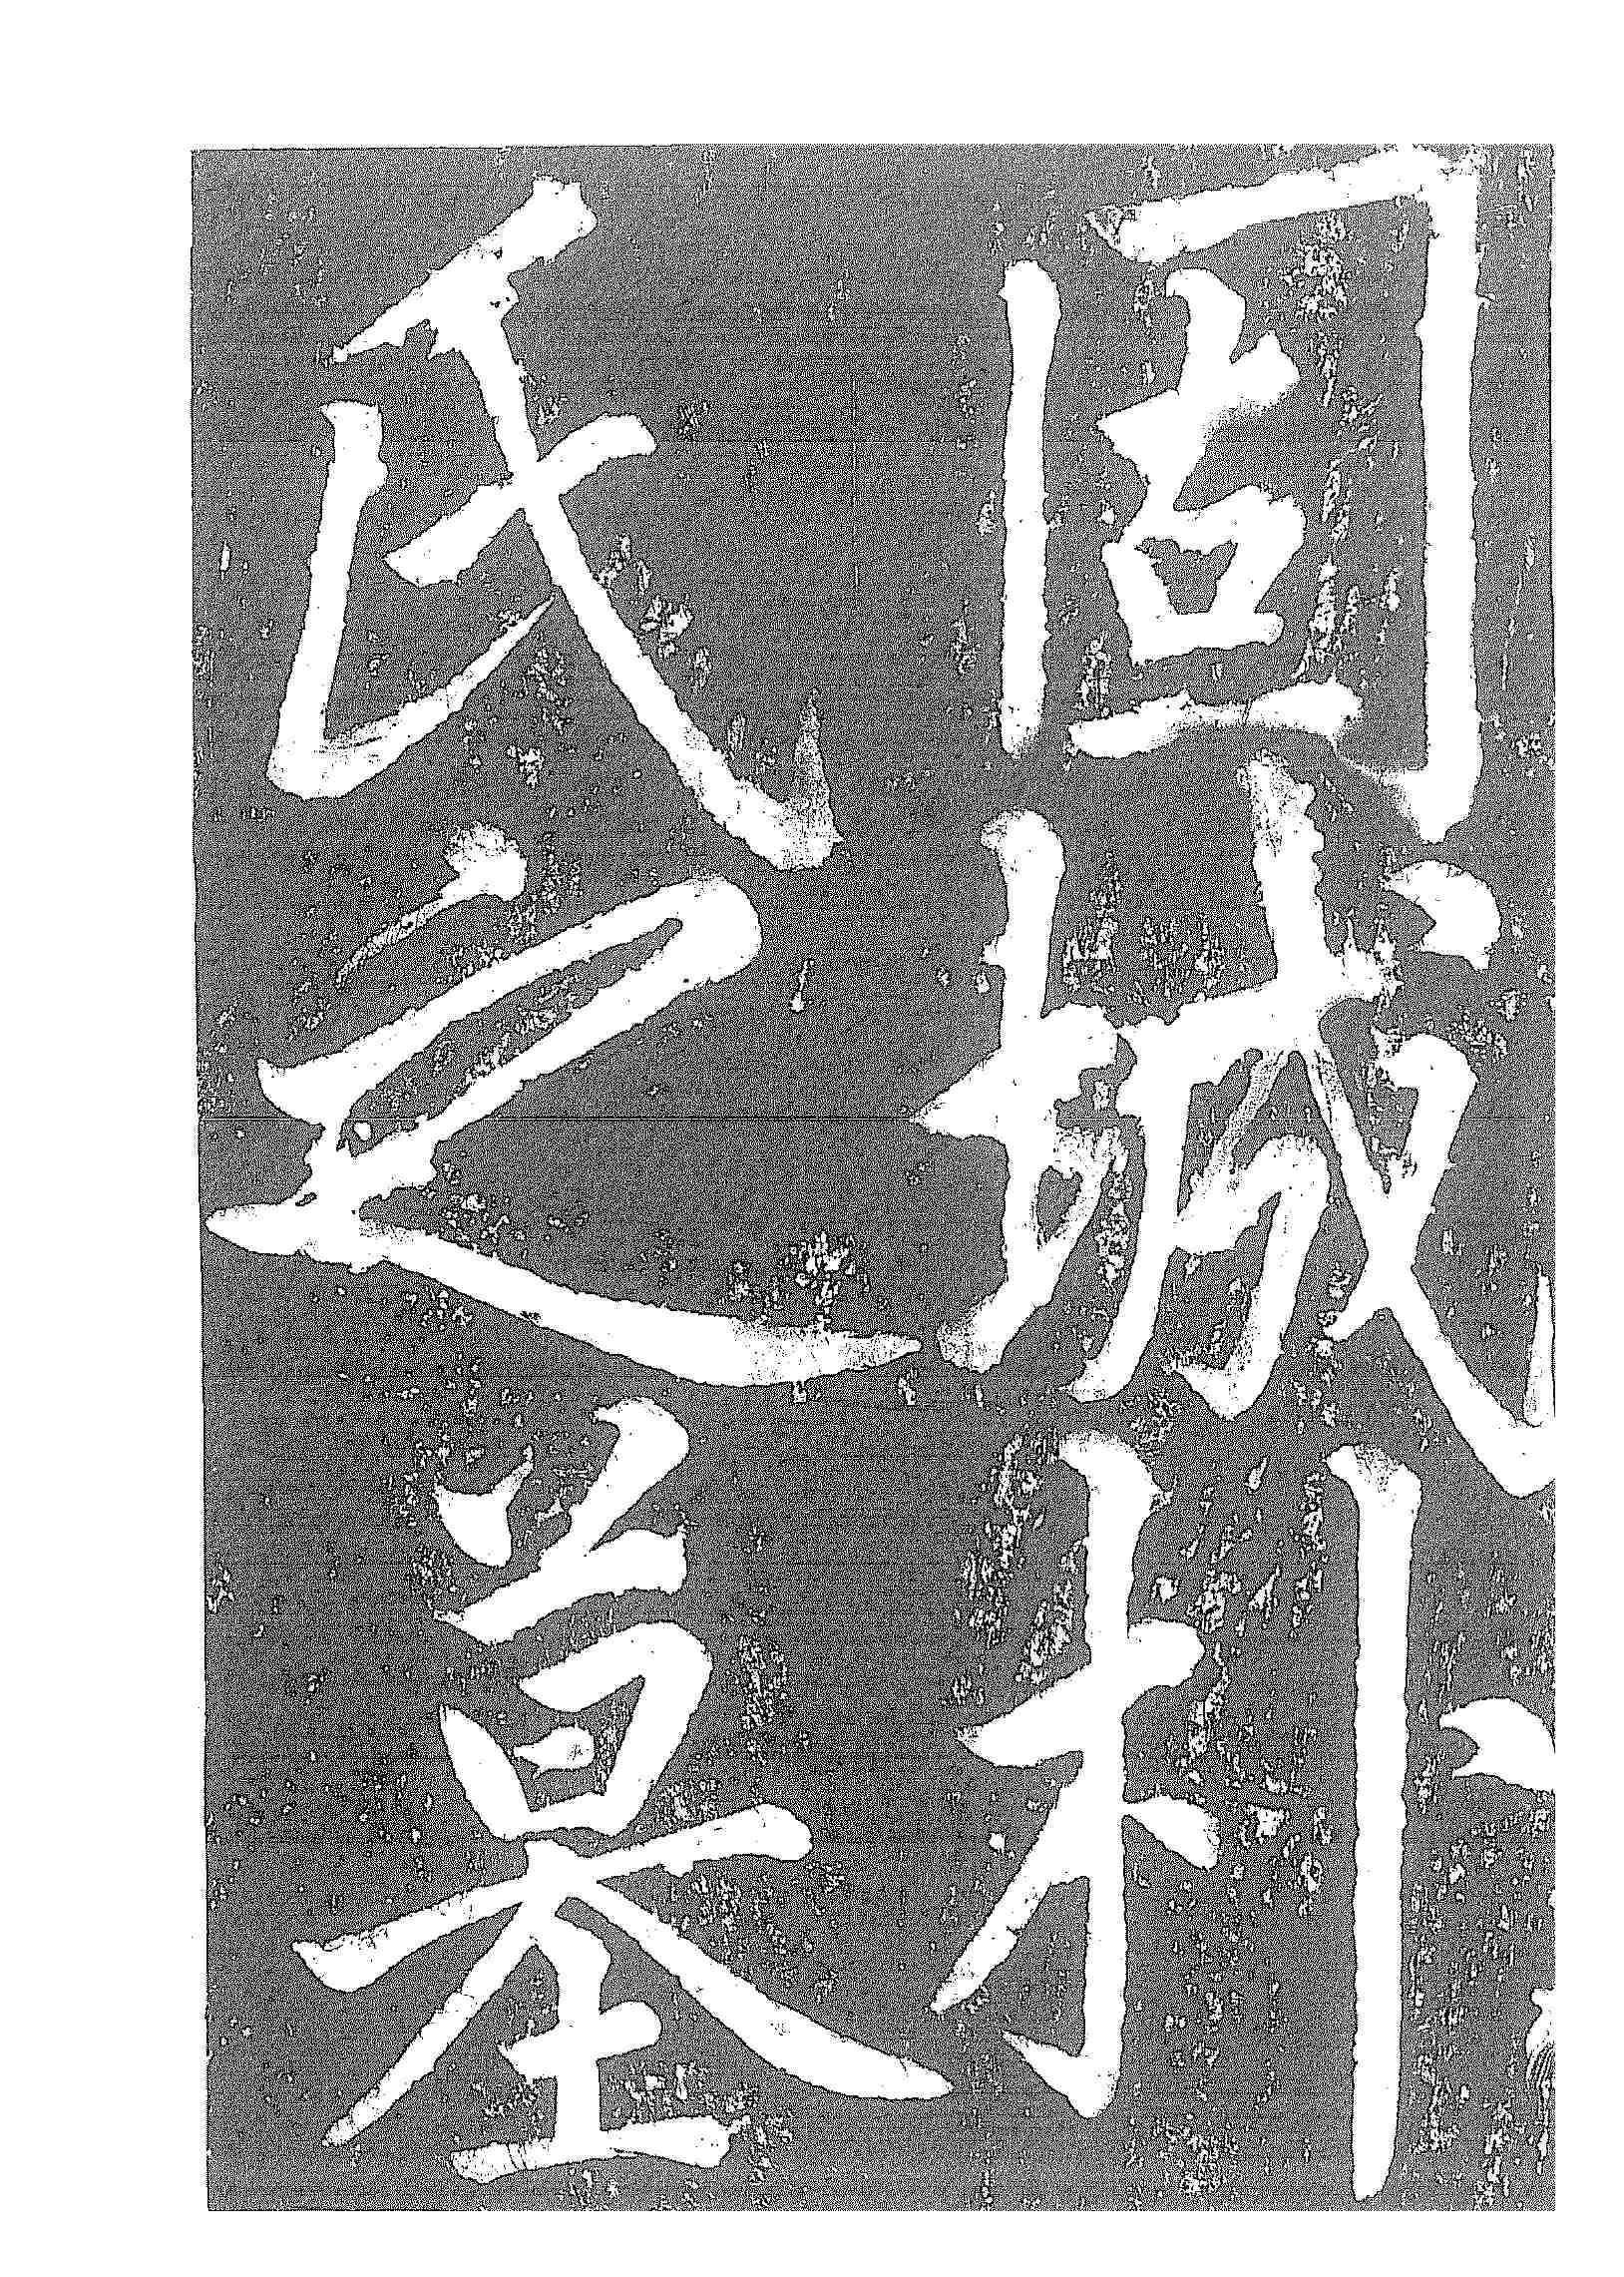 固城朴
氏之墓